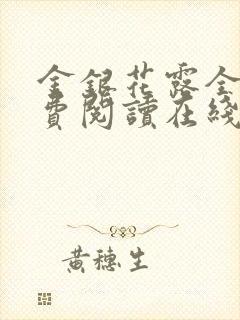 金銀花露全
費閱讀在綫
黃穗生